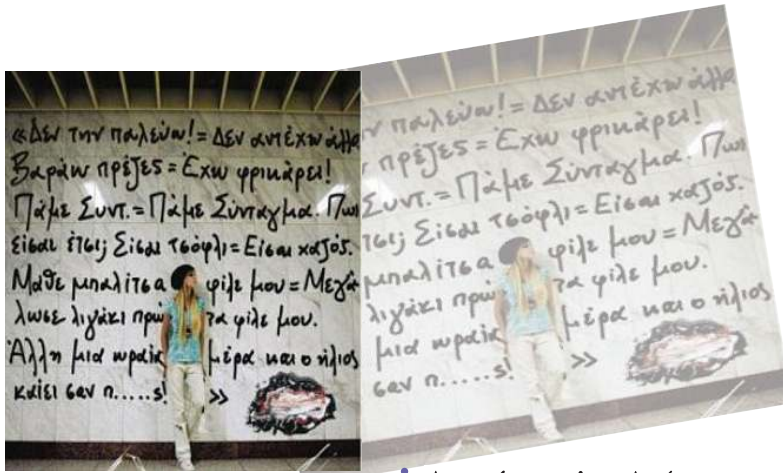 «Δεν την παλεύω! = Δεν αντέχω άλλο
Βαράω πρέζες = Έχω φρικάρει!
Πάμε Συντ. = Πάμε Σύνταγμα. Πωπ
είσαι έτσι; Είσαι τσόφλι = Είσαι χαζός.
Μάθε μπαλίτσα φίλε μου = Μεγά
λωσε λιγάκι πρώτα φίλε μου.
Άλλη μια ωραία μέρα και ο ήλιος
καίει σαν π.....ς! »
ην παλεύω! = Δεν αντέχω άλλο
πρέζες = Έχω φρικάρει!
Συντ. = Πάμε Σύνταγμα. Πωπ
τσι; Είσαι τσόφλι = Είσαι χαζός.
μπαλίτσα φίλε μου = Μεγά
λιγάκι πρώτα φίλε μου.
μια ωραία μέρα και ο ήλιος
σαν π.....ς! »